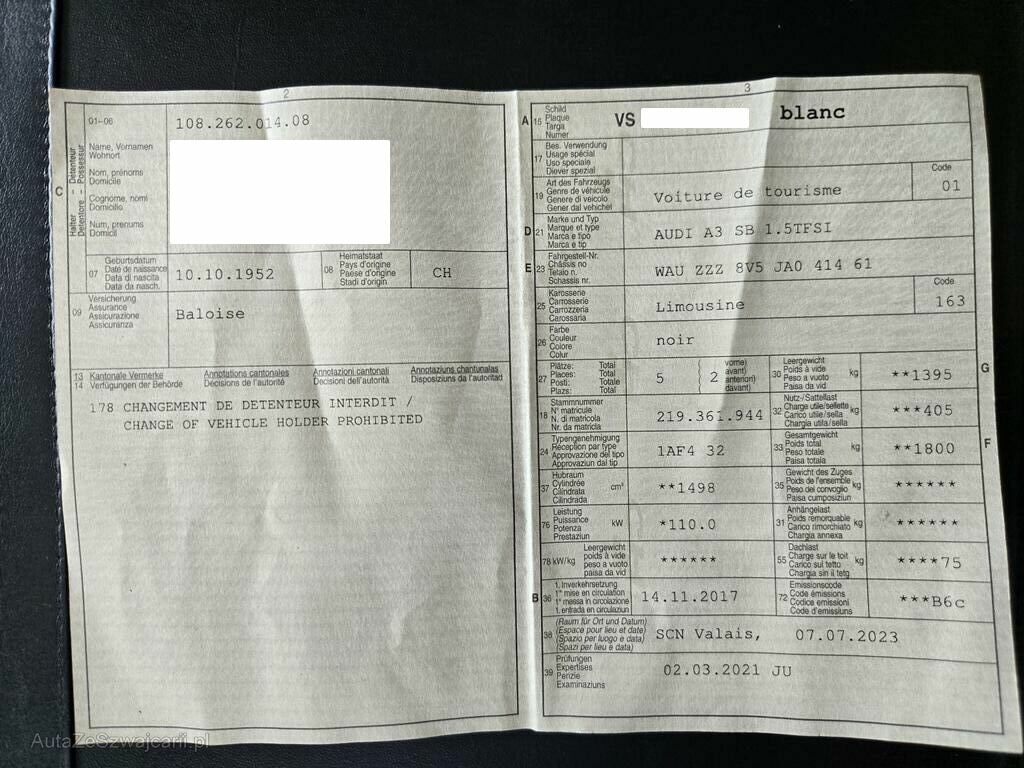 2
01-06
108.262.014.08
Halter – Détenteur
Detentore – Possessur
C
Name, Vornamen
Wohnort
Nom, prénoms
Domicile
Cognome, nomi
Domicilio
Num, prenums
Domicil
07
Geburtsdatum
Date de naissance
Data di nascita
Data da nasch.
10.10.1952
08
Heimatstaat
Pays d'origine
Paese d'origine
Stadi d'origin
CH
09
Versicherung
Assurance
Assicurazione
Assicuranza
Baloise
13 Kantonale Vermerke
14 Verfügungen der Behörde
Annotations cantonales
Décisions de l'autorité
Annotazioni cantonali
Decisioni dell'autorità
Annotaziuns chantunalas
Disposiziuns da l'autoritad
178 CHANGEMENT DE DETENTEUR INTERDIT /
CHANGE OF VEHICLE HOLDER PROHIBITED
3
A 15
Schild
Plaque
Targa
Numer
VS blanc
17
Bes. Verwendung
Usage spécial
Uso speciale
Diever spezial
19
Art des Fahrzeugs
Genre de véhicule
Genere di veicolo
Gener dal vehichel
Voiture de tourisme
Code
01
D 21
Marke und Typ
Marque et type
Marca e tipo
Marca e tip
AUDI A3 SB 1.5TFSI
E 23
Fahrgestell-Nr.
Châssis no
Telaio n.
Schassis nr.
WAU ZZZ 8V5 JA0 414 61
25
Karosserie
Carrosserie
Carrozzeria
Carossaria
Limousine
Code
163
26
Farbe
Couleur
Colore
Colur
noir
27
Plätze: Total
Places: Total
Posti: Totale
Plazs: Total
5 ( 2
vorne)
avant)
anteriori)
davant)
30
Leergewicht
Poids à vide
Peso a vuoto
Paisa da vid
kg
**1395
G
18
Stammnummer
N° matricule
N. di matricola
Nr. da matricla
219.361.944
32
Nutz-/Sattellast
Charge utile/sellette
Carico utile/sella
Chargia utila/sella
kg
***405
24
Typengenehmigung
Réception par type
Approvazione del tipo
Approvaziun dal tip
1AF4 32
33
Gesamtgewicht
Poids total
Peso totale
Paisa totala
kg
**1800
F
37
Hubraum
Cylindrée
Cilindrata
Cilindrada
cm³
**1498
35
Gewicht des Zuges
Poids de l'ensemble
Peso del convoglio
Paisa cumposiziun
kg
******
76
Leistung
Puissance
Potenza
Prestaziun
kW
*110.0
31
Anhängelast
Poids remorquable
Carico rimorchiato
Chargia annexa
kg
******
78 kW/kg
Leergewicht
poids à vide
peso a vuoto
paisa da vid
******
55
Dachlast
Charge sur le toit
Carico sul tetto
Chargia sin il tetg
kg
****75
B 36
1. Inverkehrsetzung
1re mise en circulation
1a messa in circolazione
1. entrada en circulaziun
14.11.2017
72
Emissionscode
Code émissions
Codice emissioni
Code d'emissiuns
***B6c
38
(Raum für Ort und Datum)
(Espace pour lieu et date)
(Spazio per luogo e data)
(Spazi per lieu e data)
SCN Valais, 07.07.2023
39
Prüfungen
Expertises
Perizie
Examinaziuns
02.03.2021 JU
AutaZeSzwajcarii.pl